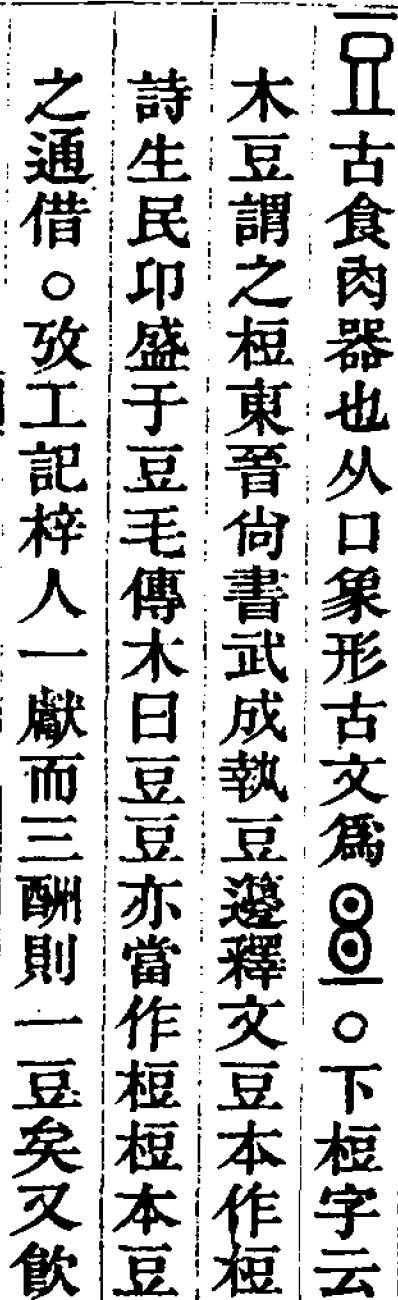 豆古食肉器也从口象形古文爲〇下梪字云
木豆謂之梪東晉尙書武成執豆籩釋文豆本作梪
詩生民卬盛于豆毛傳木曰豆豆亦當作梪梪本豆
之通借〇攷工記梓人一獻而三酬則一豆矣又飮